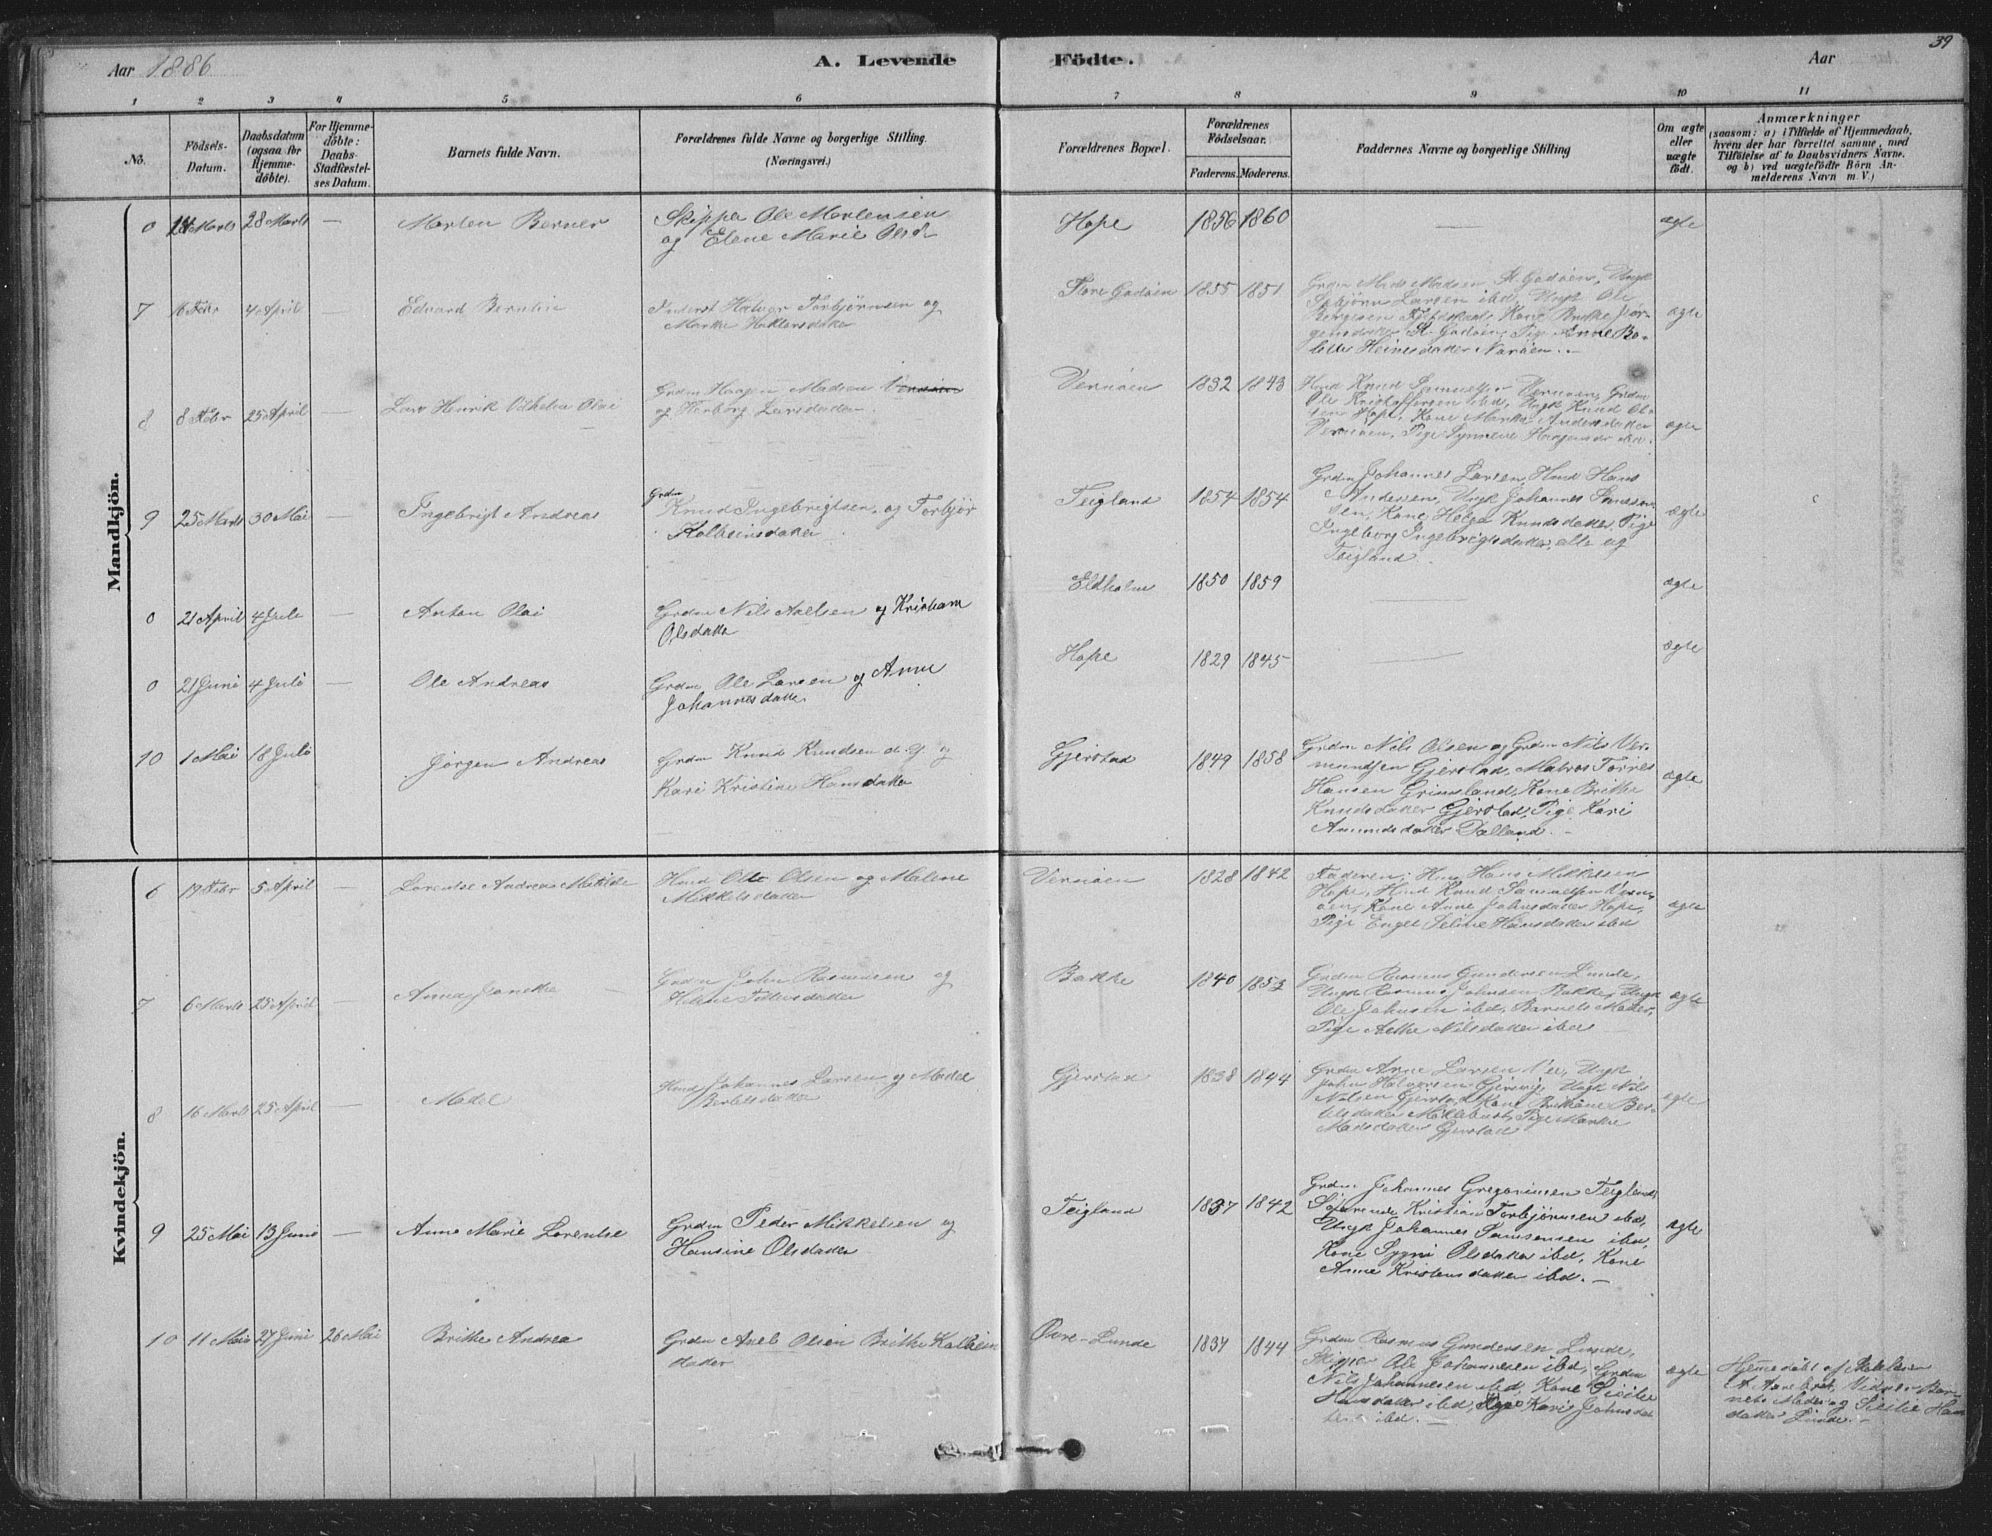 39
Aar 1886
A. Levende Födte.
Aar
1 2 3 4 5 6 7 8 9 10 11
No.
Födsels-Datum.
Daabsdatum (ogsaa for Hjemme-döbte).
For Hjemme-döbte: Daabs-Stadfæstel-ses Datum.
Barnets fulde Navn.
Forældrenes fulde Navne og borgerlige Stilling.
(Næringsvei.)
Forældrenes Bopæl.
Forældrenes Födselsaar.
Faderens. Moderens.
Faddernes Navne og borgerlige Stilling
Om ægte eller uægte födt.
Anmærkninger
(saasom: a) i Tilfælde af Hjemmedaab,
hvem der har forrettet samme, med
Tilföielse af to Daabsvidners Navne,
og b) ved uægtefödte Börn An-
melderens Navn m. V.)
Mandkjön.
0 14 Marts 28 Marts — Morten Berner
Skipper Ole Mortensen
og Elene Marie Olsd
Hope 1856 1860 — ægte
7 16 Febr 4 April — Edvard Berntin
Inderst Halvor Torbjørnsen og
Marthe Haktorsdatter
Store Godøen 1855 1851
Grdm Mads Madsen St. Godøen, Ungk
Torbjørn Larsen ibd, Ungk Ole
Kone Brithe Jør-
gensdatter St. Godøen, Pige Anne Bo-
lette Heinesdatter Narøen.
ægte
8 8 Febr 25 April — Lars Henrik Vilhelm Olai
Grdm Haagen Madsen
og Herborg Larsdatter
Vernøen 1832 1843
Hmd Knud Samuelsen Vernøen, Grdm
Ole Kristoffersen ibd, Ungk Knud Ol-
sen Hope, Kone Marthe Andersdatter
Vernøen, Pige Synneve Haagensdr ibd.
ægte
9 25 Marts 30 Mai — Ingebrigt Andreas
Grdm
Knud Ingebrigtsen og Torbjør
Kolbeinsdatter
Teigland 1854 1854
Grdm Johannes Larsen, Hmd Hans
Andersen, Ungk Johannes Samson-
sen, Kone Helga Knudsdatter, Pige
Ingeborg Ingebrigtsdatter, alle og
Teigland.
ægte
0 21 April 4 Juli — Anton Olai
Grdm Nils Axelsen og Kristiane
Olsdatter
Eldholm 1850 1859 — ægte
0 21 Juni 4 Juli — Ole Andreas
Grdm Ole Larsen og Anne
Johannesdatter
Hope 1829 1845 — ægte
10 1 Mai 18 Juli — Jørgen Andreas
Grdm Knud Knudsen d. y. og
Kari Kristine Hansdatter
Gjerstad 1849 1858
Grdm Nils Olsen og Grdm Nils Ver-
mundsen Gjerstad, Matros Torres
Hansen Grimsland, Kone Brithe
Knudsdatter Gjerstad, Pige Kari
Amundsdatter Dalland.
ægte
Kvindekjön.
6 17 Febr 5 April — Lorentse Andrea Mathilde
Hmd Ole Olsen og Malene
Mikkelsdatter
Vernøen 1828 1842
Faderen, Hmd Hans Mikkelsen
Hope, Hmd Knud Samuelsen Vern-
øen, Kone Anne Johnsdatter Hope,
Pige Engel Seline Hansdatter ibd
ægte
7 6 Marts 25 April — Anna Janthe
Grdm John Rasmusen og
Helene
Bakke 1840 1853
Grdm Rasmus Gundersen Lunde,
Ungk Rasmus Johnsen Bakke, Ungk
Ole Johnsen ibd, Barnets Moder,
Pige Nilsdatter ibd
ægte
8 16 Marts 25 April — Madel
Hmd Johannes Larsen og Madel
Bertelsdatter
Gjerstad 1838 1844
Grdm Arne Larsen Vee, Ungk
John Halvorsen Gjersvig, Ungk Nils
Nilsen Gjerstad, Kone Brithe Ber-
telsdatter Møklebust, Pige Marthe
Madsdatter Gjerstad
ægte
9 25 Mai 13 Juni — Anne Marie Lorentse
Grdm Peder Mikkelsen og
Hansine Olsdatter
Teigland 1837 1842
Grdm Johannes Gregoriusen Teigland,
Søfarende Kristian Torbjørnsen ibd,
Ungk Johannes Samsonsen ibd,
Kone Sygni Olsdatter ibd, Kone
Anne Kristensdatter ibd.
ægte
10 11 Mai 27 Juni 26 Mai Brithe Andrea
Grdm Axel Olsen Brithe Kolbein
datter
Øvre-Lunde 1837 1844
Grdm Rasmus Gundersen Lunde,
Skipper Ole Johannesen ibd, Grdm
Nils Johannesen ibd, Kone Sicilie
Hansdatter ibd, Pige Kari Johnsdat
ter ibd.
ægte
Hjemmedøbt af
Vidner Bar-
nets Moder og Silslie Hans
datter Lunde.